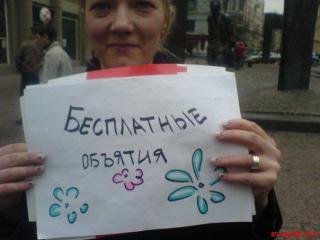 БЕСПЛАТНЫЕ
ОБЪЯТИЯ